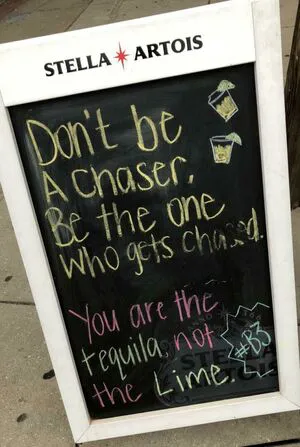 STELLA ARTOIS
Don't be
A chaser.
Be the one
who gets chased.
You are the
tequila, not
the Lime.
#B3
STELLA
ARTOIS